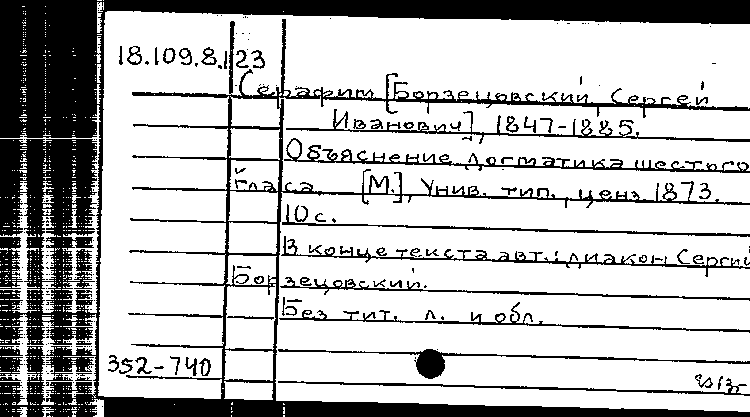 18.109.8.123
Серафим [Борзецовский, Сергей
Иванович], 1847-1885.
Объяснение догматика шестого
гласа. [М.], Унив. тип., ценз. 1873.
10 с.
В конце текста авт.: диакон Сергий
Борзецовский.
Без тит. л. и обл.
352-740